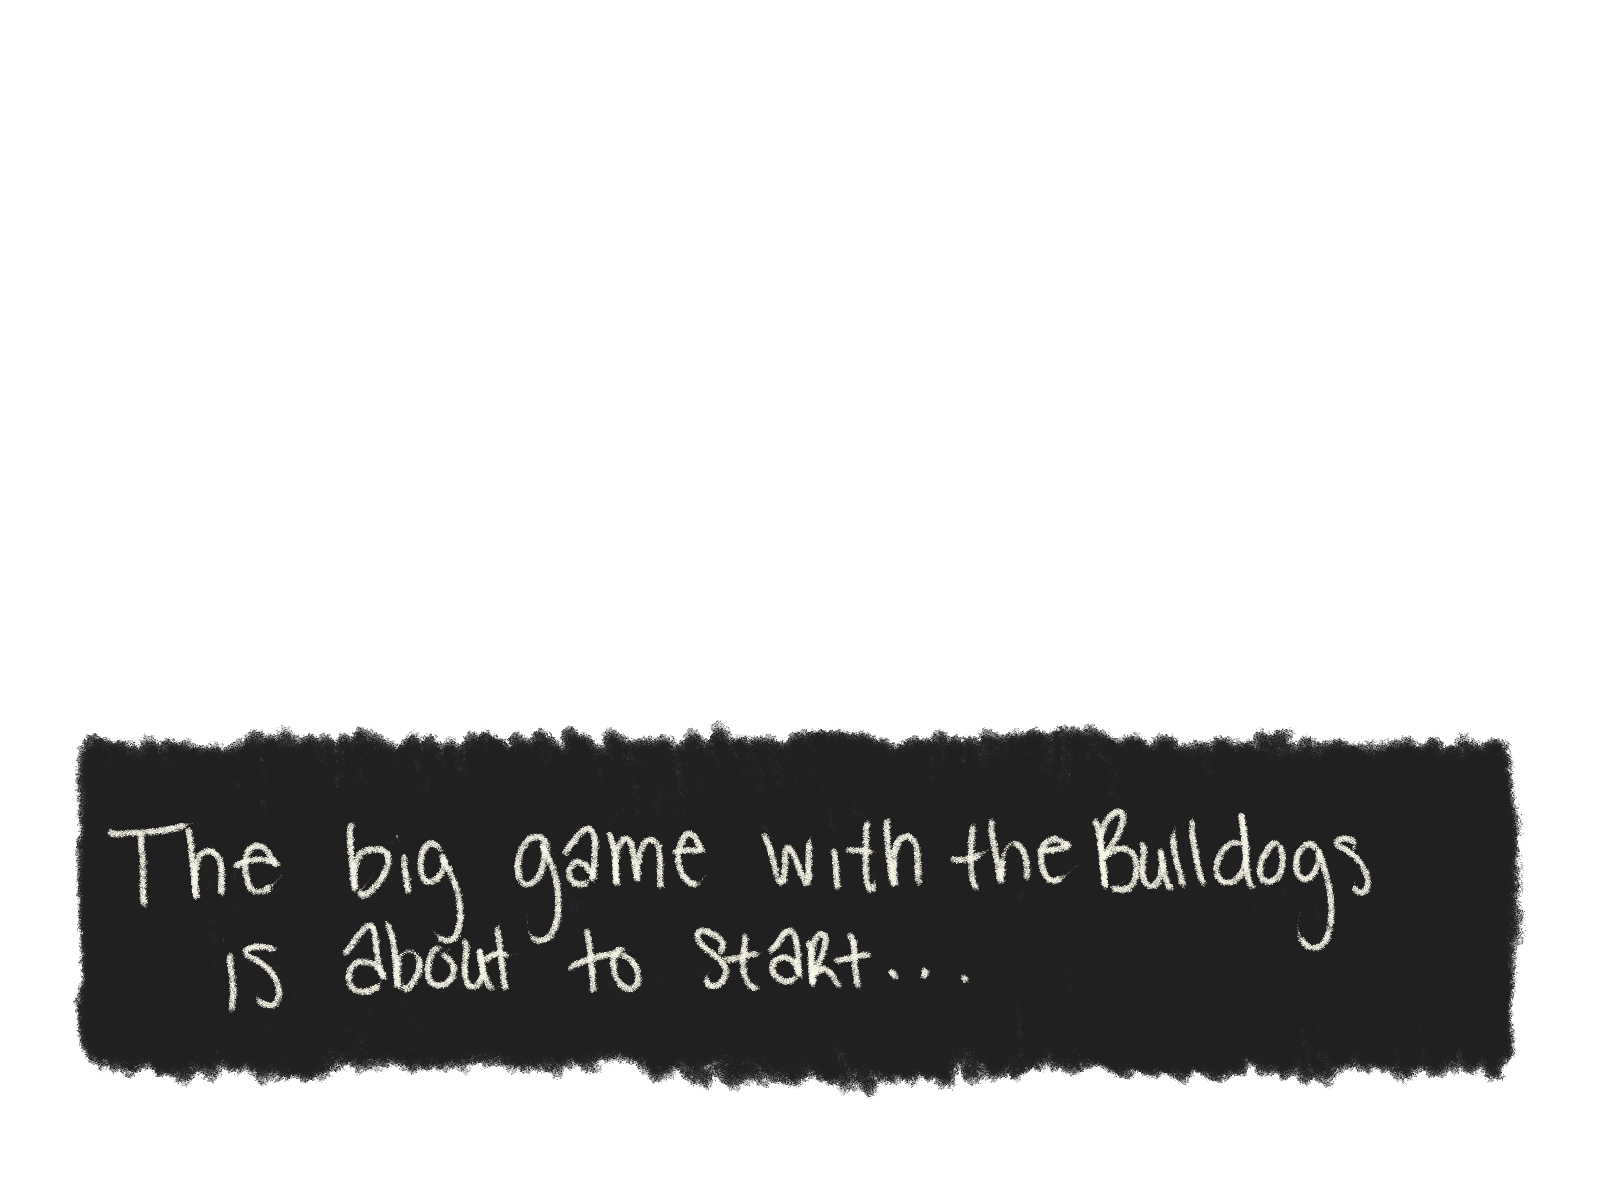 The big game with the Bulldogs
is about to start...